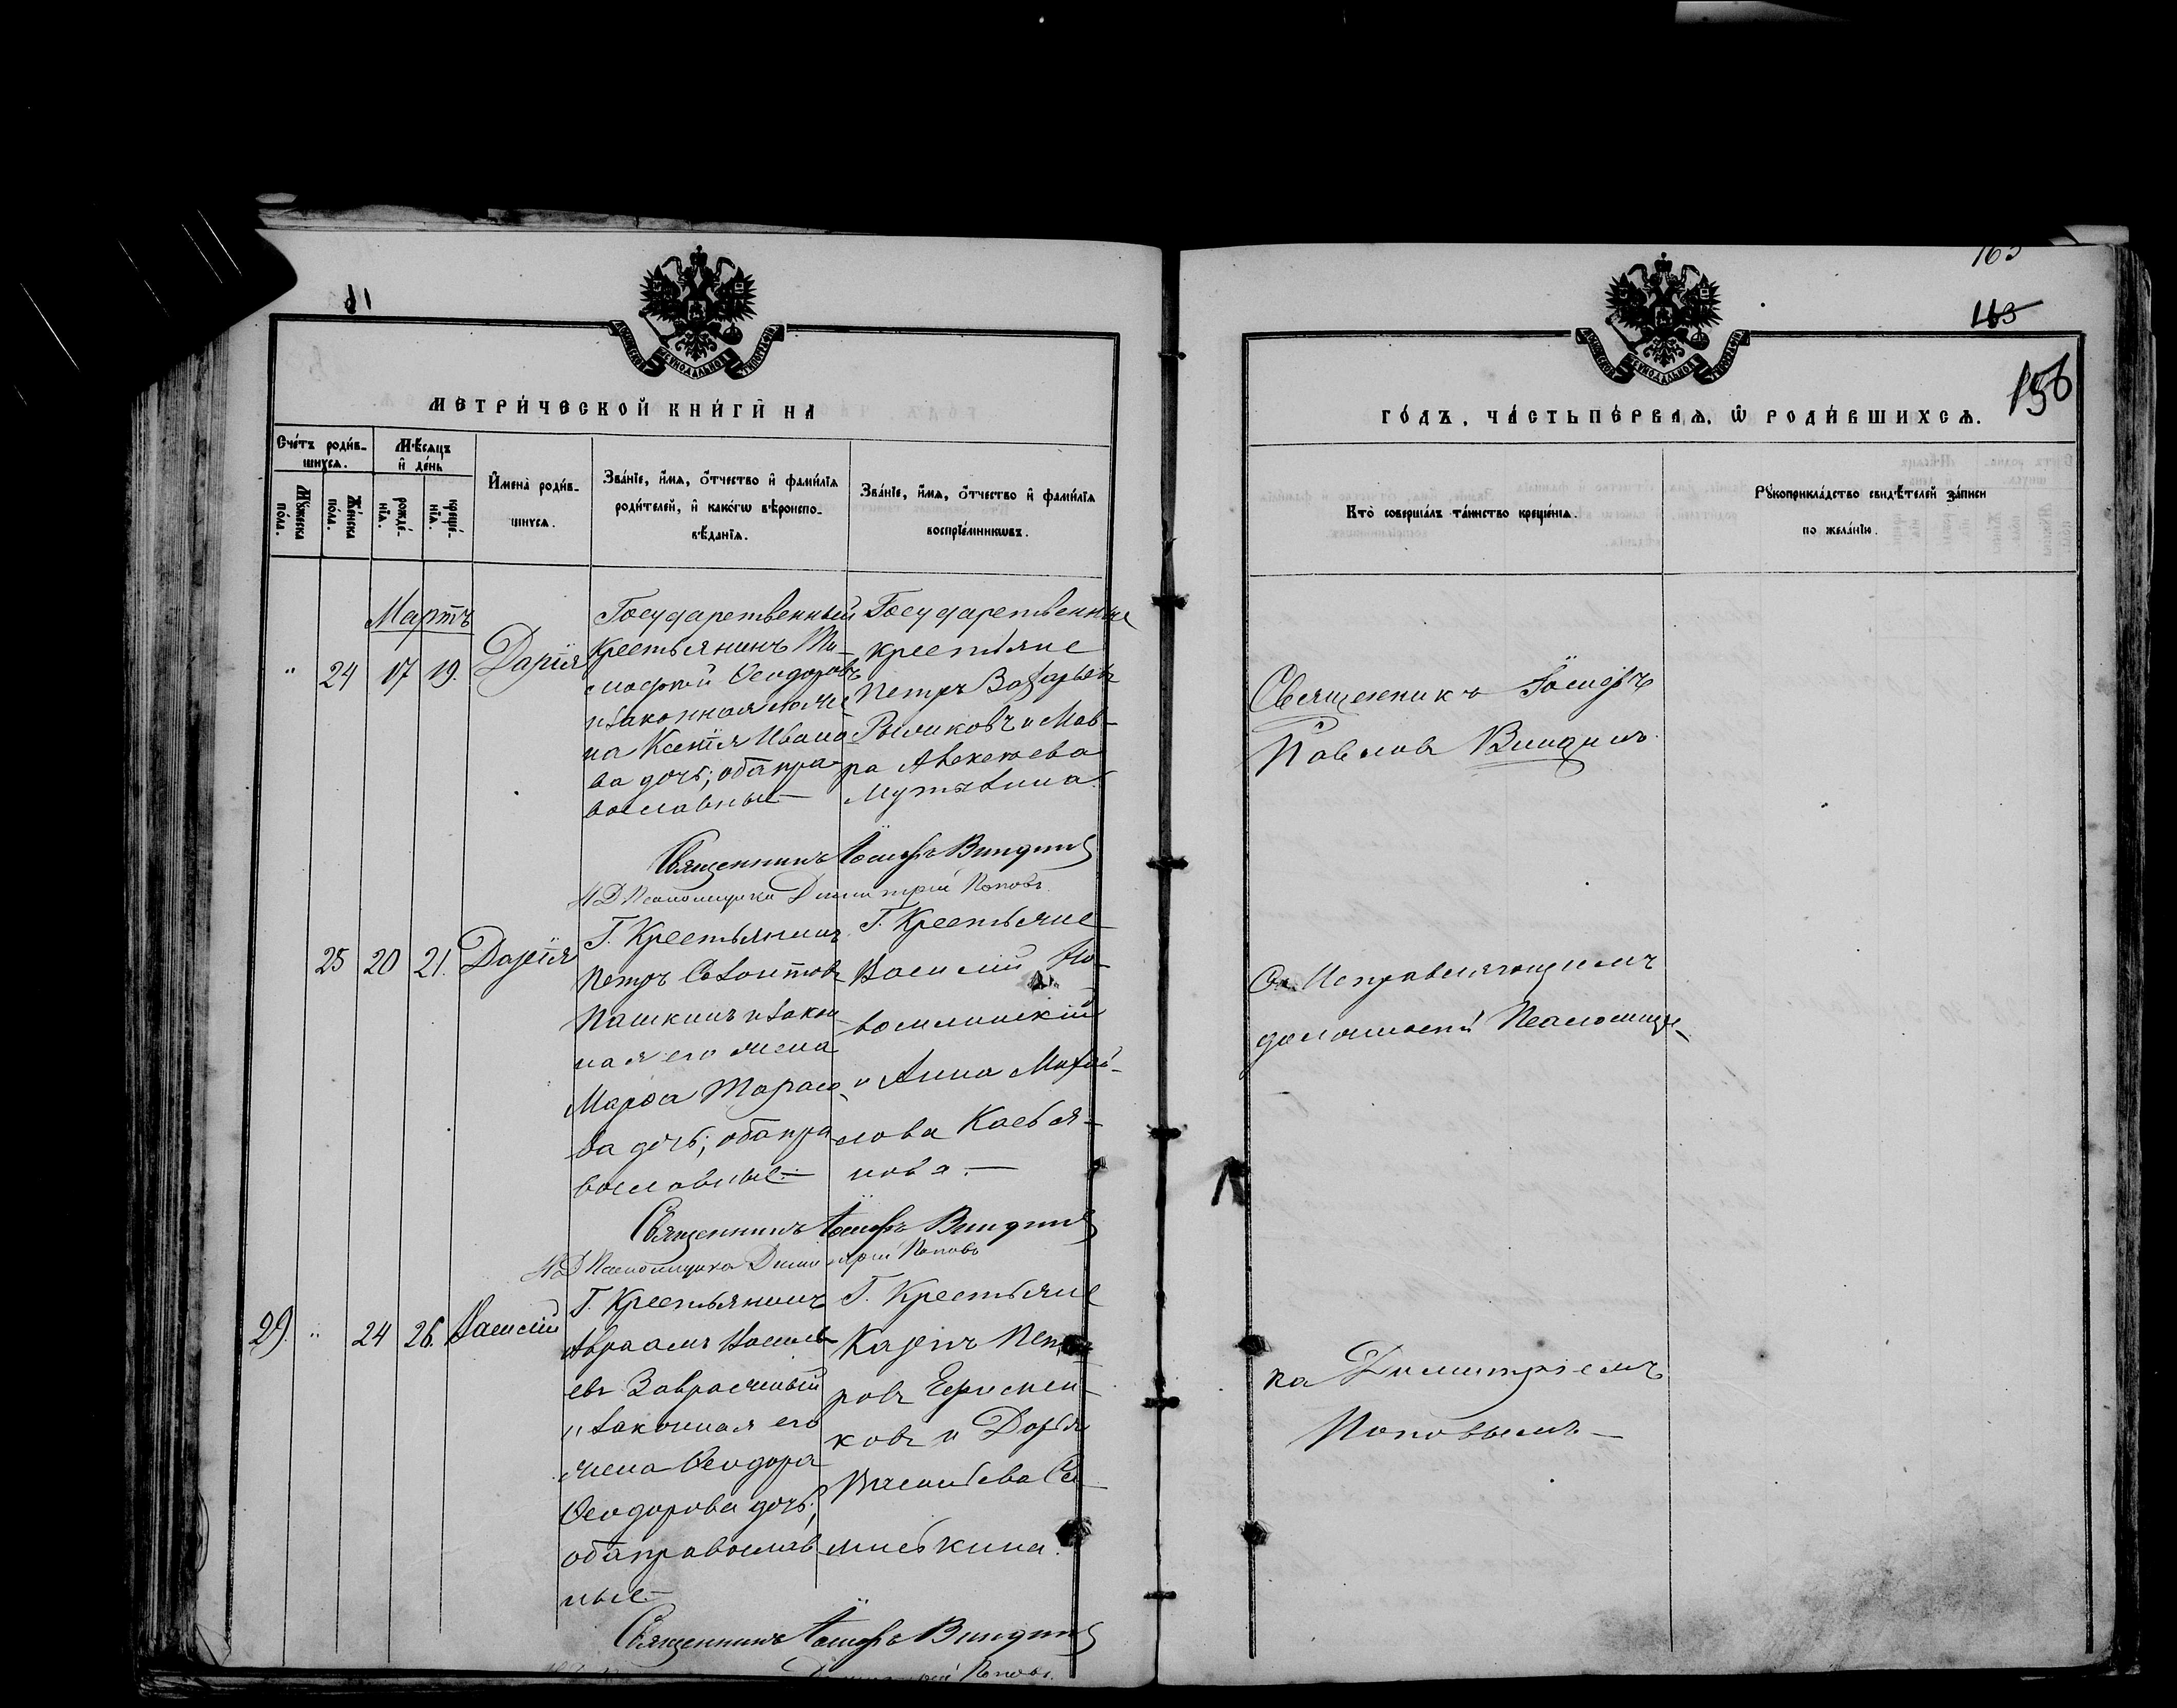 11
МЕТРИ́ЧЕСКОЙ КНИ́ГИ НА
Сче́тъ роди́вшихсѧ.
Мѹ́жеска по́ла.
Же́нска по́ла.
Мѣ́сѧцъ и҆ де́нь
рожде́нїѧ.
креще́нїѧ.
И҆мена̀ роди́вшихсѧ.
Зва́нїе, и҆́мѧ, ѻ҆́тчество и҆ фами́лїѧ
роди́телей, и҆ како́гѡ вѣроиспо-
вѣ́данїѧ.
Зва́нїе, и҆́мѧ, ѻ҆́тчество и҆ фами́лїѧ
воспрїе́мникѡвъ.
Мартъ
" 24 17 19. Дарія
Государственный
крестьянинъ Ти-
моѳей Ѳеодоровъ
и законная
на Ксенія Ивано-
ва дочь; оба пра-
вославные
Государственные
крестьяне
Петръ Захарьевъ
Рыликовъ и Мав-
ра Алексеева
Священникъ Іосифъ Виндинъ
И Д Псаломщика Димитрій Поповъ
25 20 21. Дарія
Г. Крестьянинъ
Петръ
Пашкинъ и закон-
ная его жена
Марѳа Тарасо-
ва дочь; оба пра-
вославные
Г. Крестьяне
Василій Но-
и Анна Михай-
лова Касья-
нова.
Священникъ Іосифъ Виндинъ
И Д Псаломщика Димитрій Поповъ
29. " 24 26. Василій
Г. Крестьянинъ
Авраамъ Василь-
евъ Завражный
и законная его
жена Ѳеодора
Ѳеодорова дочь;
оба православ-
ные
Г. Крестьяне
Карпъ Пет-
ровъ Ефимен-
ковъ и Дарья
Васильева Се-
минькина.
Священникъ Іосифъ Виндинъ
Димитрій Поповъ.
163
163
156
ГО́ДЪ, ЧА́СТЬ ПЕ́РВАѦ, Ѡ҆ РОДИ́ВШИХСѦ.
Кто̀ соверша́лъ та́инство креще́нїѧ.
Рѹкоприкла́дство свидѣ́телей за́писи
по жела́нїю.
Священникъ Іосифъ
Павловъ Виндинъ
Съ Исправляющимъ
должность Псаломщи-
ка Димитріемъ
Поповымъ